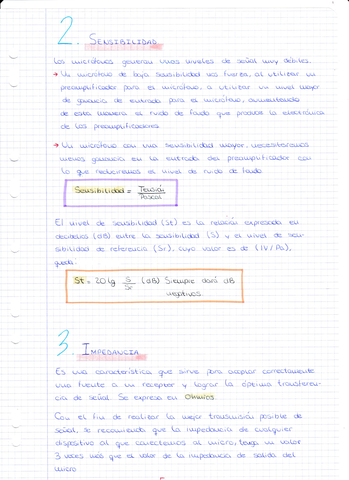 2. SENSIBILIDAD
Los micrófonos generan unos niveles de señal muy débiles.
→ Un micrófono de baja sensibilidad nos fuerza, al utilizar un
preamplificador para el micrófono, a utilizar un nivel mayor
de ganancia de entrada para el micrófono, aumentando
de esta manera el ruido de fondo que produce la electrónica
de los preamplificadores.
→ Un micrófono con una sensibilidad mayor, necesitaremos
menos ganancia en la entrada del preamplificador con
lo que reduciremos el nivel de ruido de fondo.
Sensibilidad = Tensión
Pascal
El nivel de sensibilidad (St) es la relación expresada en
decibelios (dB) entre la sensibilidad (S) y el nivel de sen-
sibilidad de referencia (Sr), cuyo valor es de (1V/Pa),
queda:
St = 20 lg S/Sr (dB) Siempre dará dB
negativos.
3. IMPEDANCIA
Es una característica que sirve para acoplar correctamente
una fuente a un receptor y lograr la óptima transferen-
cia de señal. Se expresa en Ohmios.
Con el fin de realizar la mejor transmisión posible de
señal, se recomienda que la impedancia de cualquier
dispositivo al que conectemos al micro, tenga un valor
3 veces más que el valor de la impedancia de salida del
micro